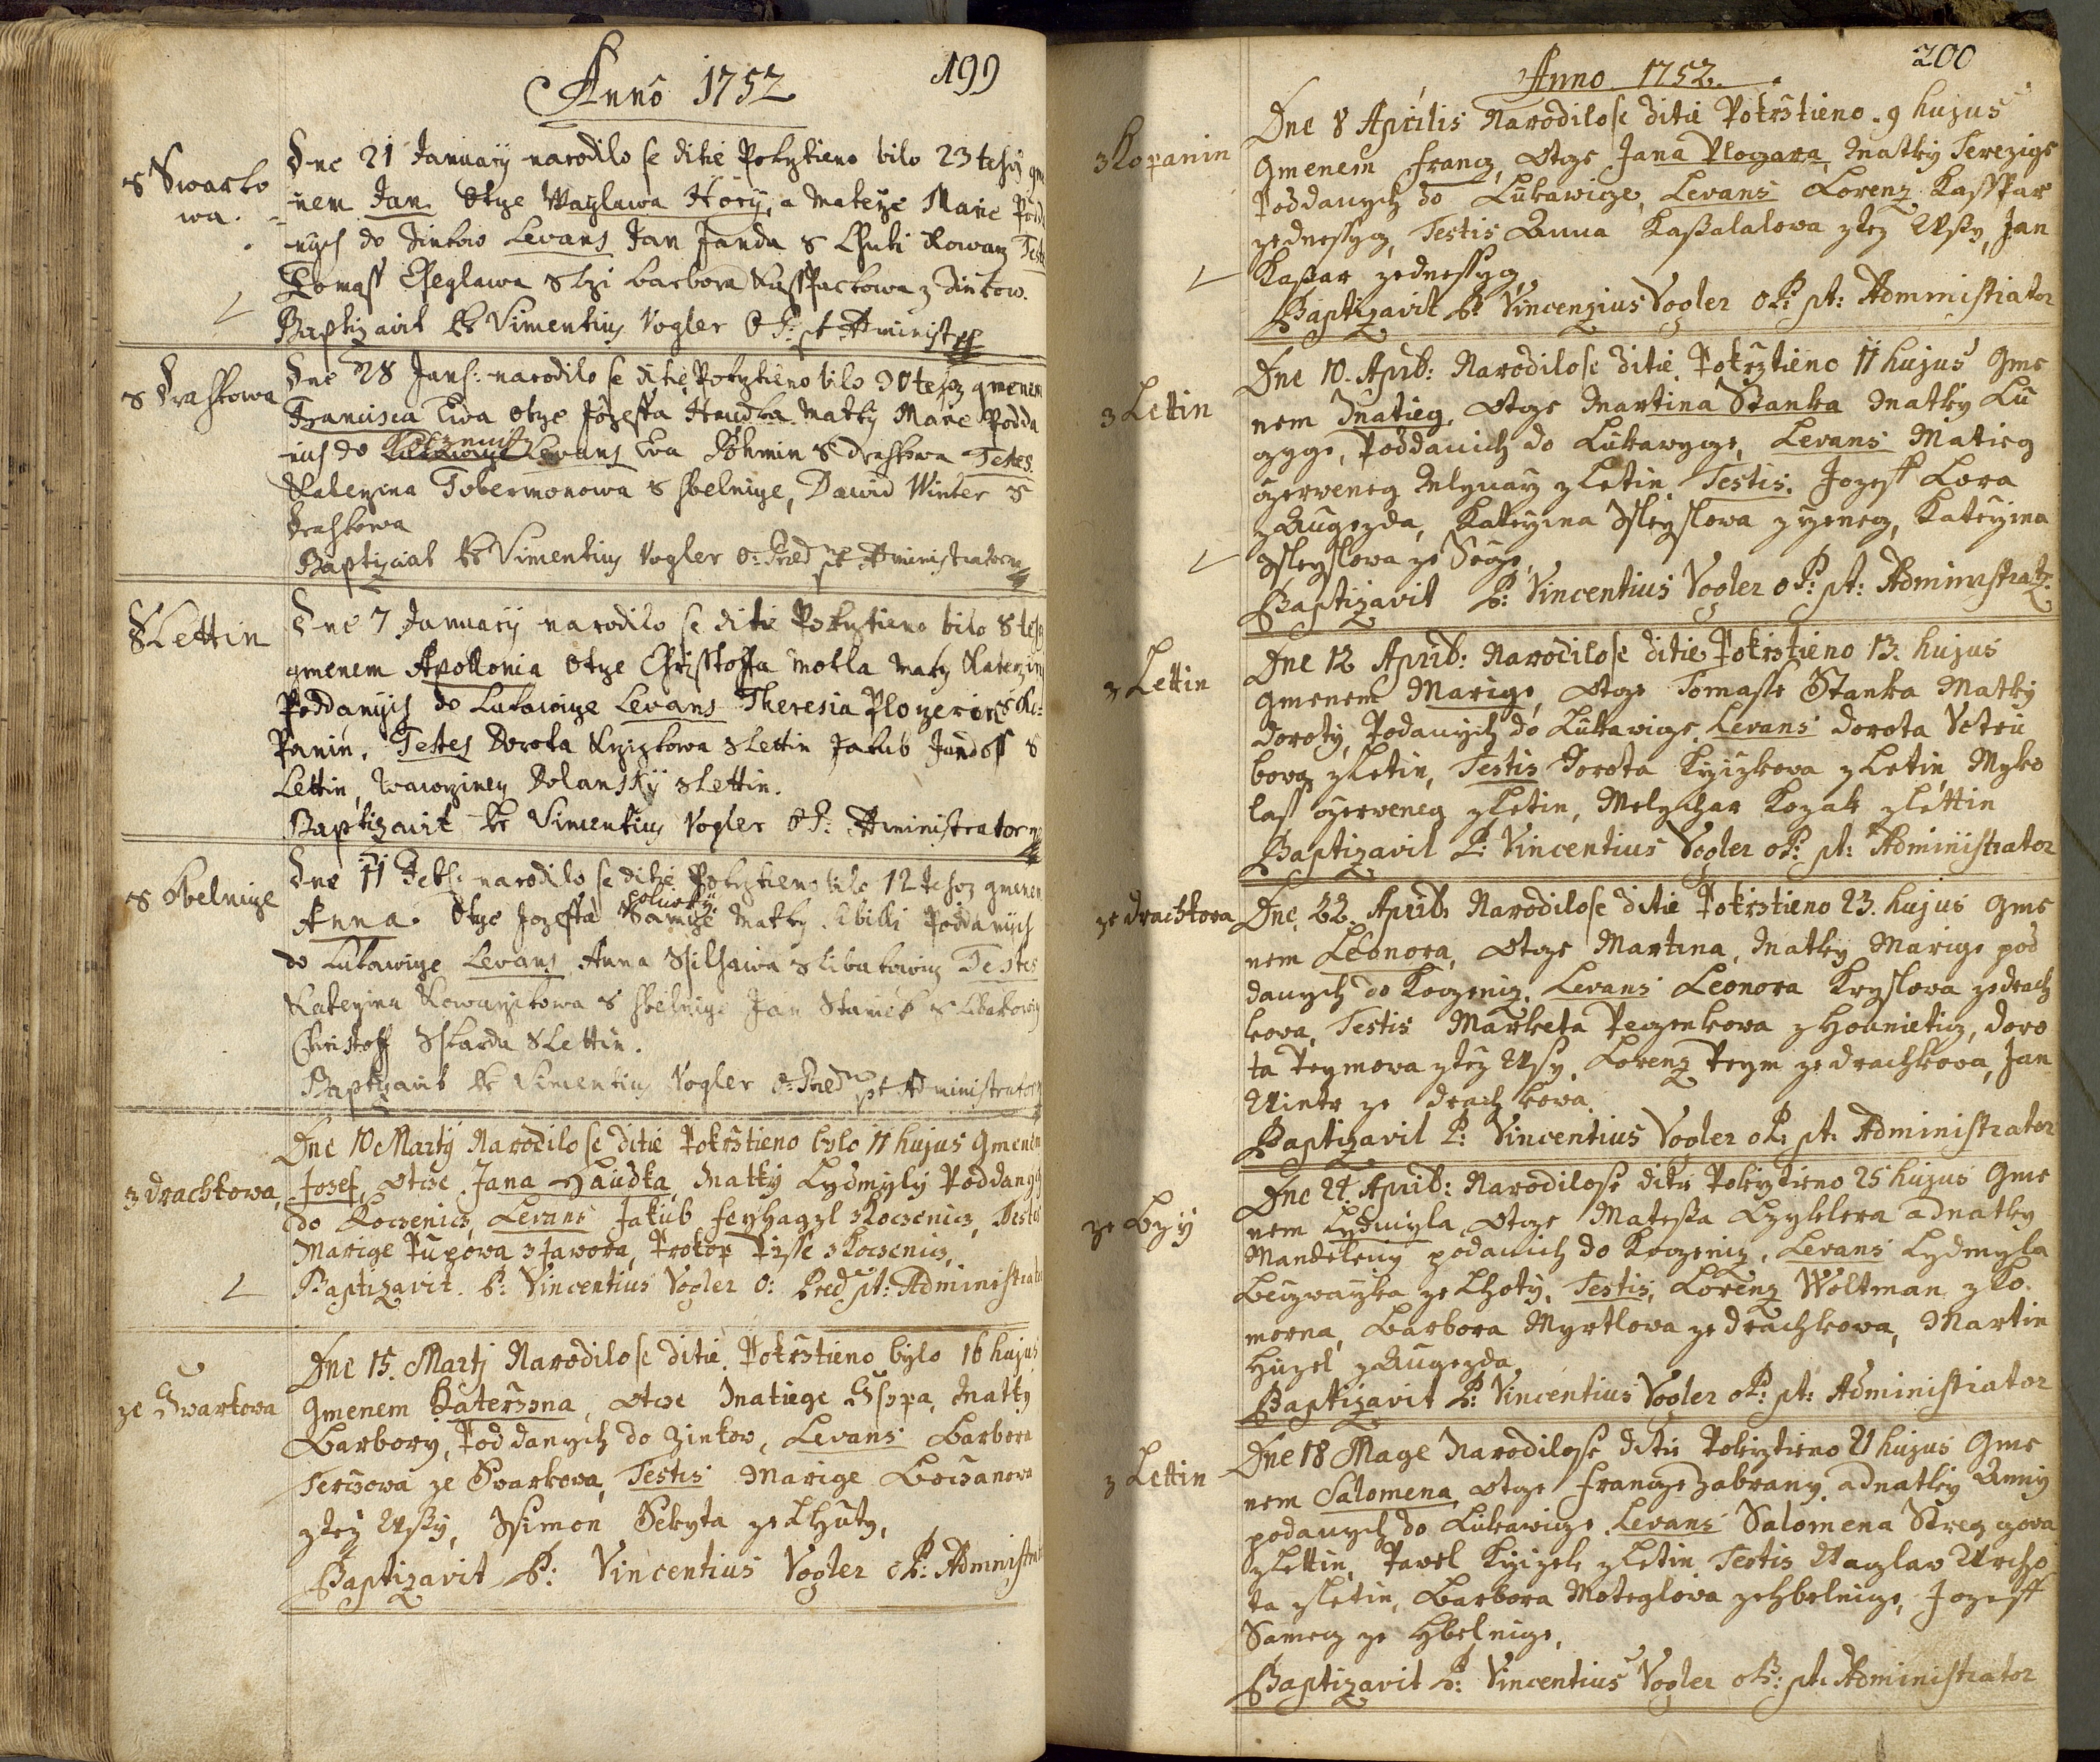 Anno 1752
199
s Swarko
wa.
Dne 21 January narodilo se ditie Pokrztieno bilo 23 tehoz gme
nem Jan Otze Waylawa Hory, a Materze Marie Podd
nych do Zinkow Levans Jan Janda s Chuti Kowarz Testes
Tomass Cheglawa s Lzi barbora Kassparkowa z Zinkow.
Baptizavit Pr Vimentius Vogler O: P: pt Administ
s Drahkowa
Dne 28 Jan: narodilo se ditie Pokrztieno bilo 30 tehoz gmenem
Francisca Ewa otze Jozeffa Haudka Matky Marie Podda
nich do Koczenitz Levans Ewa Böhmin s Drahkowa Testes.
Katerzina Tobermonowa s Hbelnize, Dawid Winter s
Drahkowa
Baptizavit Pr Vimentius Vogler O: Præd pt Administrator
s Lettin
Dne 7 January narodilo se ditie Pokrztieno bilo 8 teho
gmenem Apollonia Otze Christoffa Motla Matky Katerzin
Poddanych do Lukawize Levans Theresia Plozerin s Ko=
Panin. Testes Dorota Krzizkowa s Lettin Jakub Jandoss s
Lettin, Wawrzinez Dolansky s Lettin.
Baptizavit Pr Vimentius Vogler O P: Administrator
s Obelnize
Dne 11 Feb: narodilo se ditie Pokrztieno bilo 12 tehoz gmenem
Anna. Otze Jozeffa Samtze Matky Sibilli Poddanych
do Lukawize Levans Anna s Libakowiz Testes
Katerzina Kowarzikowa s Hbelnize Jan Stanek s Libakowiz
Christoff Skarda s Lettin.
Baptizavit Pr Vimentius Vogler O: Præd pt Administrator
z drachkowa,
Dne 10 Marty Narodilo se ditie Pokrstieno bylo 11 hujus Gmenem
Josef, Otcse Jana Haudka, Matky Lydmyly Poddanych
do Kocsenicz, Levans Jakub feyhagzl z Kocsenicz, Testes
Marige Pupowa z Jawora, Prokop Pisse z Kocsenicz,
Baptizavit. P: Vincentius Vogler O: Præd: pt: Administrator
ze Swarkowa
Dne 15. Martj Narodilo se ditie. Pokrstieno bylo 16 hujus
Gmenem Katersina, Otcse Matiege Matky
Barbory, Poddanych do Zinkow, Levans Barbora
Tercsowa ze Swarkowa, Testis Marige Bocsanowa
z tez Wsy, Ssimon Sekyta ze Lhuty,
Baptizavit P: Vincentius Vogler O P: Administrat
Anno 1752.
200
z Kopanin
Dne 8 Aprilis Narodilose ditie Pokrstieno. 9 hujus
Gmenem Francz, Otcze Jana Plozara, Matky Terezige
Poddanych do Lukawicze, Levans Lorenz Kassspar
zednessycz, Testis Anna Kassalalowa z tez Wssy, Jan
Kassar zednessycz,
Baptizavit P: Vincenzius Vogler O P: pt: Administrator
z Letin
Dne 10. Aprib: Narodilose ditie Pokrztieno 11 hujus Gme
nem Matieg, Otcze Martina Stanka Matky Lu
czyge, Poddanich do Lukawycze, Levans Matieg
czerweneg Mlynarz z Letin Testis. Jozeff Lora
z Augezda, Katrzina Ssleyslowa z rzeneg, Katrzina
Ssleyslowa ze Seoge,
Baptizavit P: Vincentius Vogler O P: pt: Administrat:
z Lettin
Dne 12 Aprib: Narodilose ditie Pokrstieno 13. hujus
gmenem Marige, Otcze Tomasse Stanka Matky
Doroty, Podanych do Lukawicze. Levans Dorota Vetru
bova z Letin, Testis Dorota Krzizkova z Letin, Myko
lass czerveneg z Letin, Melychar Kozak z Lettin
Baptizavit P: Vincentius Vogler O P: pt: Administrator
ze drachkova
Dne 22. Aprib. Narodilose ditie Pokrstieno 23. hujus gme
nem Leonora, Otcze Martina, Matky Marige pod
danych do Koczenicz. Levans Leonora Kryslova ze drach
kova, Testis Marketa Peczenkova z Hounieticz, Doro
ta Peymova z tez Wsy, Lorenz Peym ze drachkova, Jan
Wintr ze drachkowa.
Baptizavit P: Vincentius Vogler O P: pt. Administrator
ze Lzy
Dne 24. Aprib: Narodilose ditie Pokrztieno 25 hujus Gme
nem Lydmyla Otcze Matessa Lzyklera a Matky
Mandeleny podanich do Koczenicz, Levans Lydmyla
ze Lhoty, Testis, Lorenz Woltman z Ko
morna, Barbora Myrtlowa ze drachkowa, Martin
Huzel z Augezda,
Baptizavit P: Vincentius Vogler O P: pt: Administrator
z Lettin
Dne 18 Mage Narodilose ditie Pokrztieno 21 hujus Gme
nem Salomena, Otcze francze Zabrany a Matky Anny
podanych do Lukawicze Levans Salomena Strezgova
z Lettin, Pavel Krzizek z Letin Testis Waczlav Urcho
ta z Letin, Barbora Moteglova ze Hbelnicze, Jozeff
Samecz ze Hbelnicze,
Baptizavit P: Vincentius Vogler O P: pt. Administrator